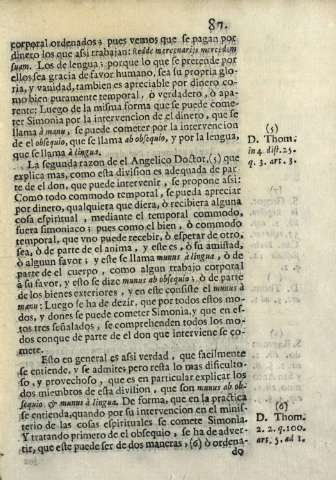 87.
corporal ordenados; pues vemos que se pagan por
dinero los que assi trabajan: Redde mercenarijs mercedem
suam. Los de lengua; porque lo que se pretende por
ellos sea gracia de favor humano, sea su propria glo-
ria, y vanidad, tambien es apreciable por dinero co-
mo bien puramente temporal, ò verdadero, ò apa-
rente: Luego de la misma forma que se puede come-
ter Simonia por la intervencion de el dinero, que se
llama à manu, se puede cometer por la intervencion
de el obsequio, que se llama ab obsequio, y por la lengua,
que se llama à lingua.
La segunda razon de el Angelico Doctor, (5) que
explica mas, como esta division es adequada de par-
te de el don, que puede intervenir, se propone assi:
Como todo commodo temporal, se pueda apreciar
por dinero, qualquiera que diera, ò recibiera alguna
cosa espiritual, mediante el temporal commodo,
fuera simoniaco; pues como el bien, ò commodo
temporal, que vno puede recebir, ò esperar de otro,
sea, ò de parte de el anima, y este es, ò su amistad,
ò algun favor; y este se llama munus à lingua, ò de
parte de el cuerpo, como algun trabajo corporal
à su favor, y esto se dize munus ab obsequio; ò de parte
de los bienes exteriores, y en este consiste el munus à
manu: Luego se ha de dezir, que por todos estos mo-
dos, y dones se puede cometer Simonia, y que en es-
tos tres señalados, se comprehenden todos los mo-
dos conque de parte de el don que interviene se co-
mete.
Esto en general es assi verdad, que facilmente
se entiende, y se admite; pero resta lo mas dificulto-
so, y provechoso, que es en particular explicar los
dos miembros de esta division, que son munus ab ob-
sequio & munus à lingua. De forma, que en la practica
se entienda, quando por su intervencion en el minis-
terio de las cosas espirituales se comete Simonia.
Y tratando primero de el obsequio, se ha de adver-
tir, que este puede ser de dos maneras, (6) ò ordena-
do
(5)
D. Thom.
in 4. dist. 25.
q. 3. art. 3.
(6)
D. Thom.
2. 2. q. 100.
art. 5. ad 1.